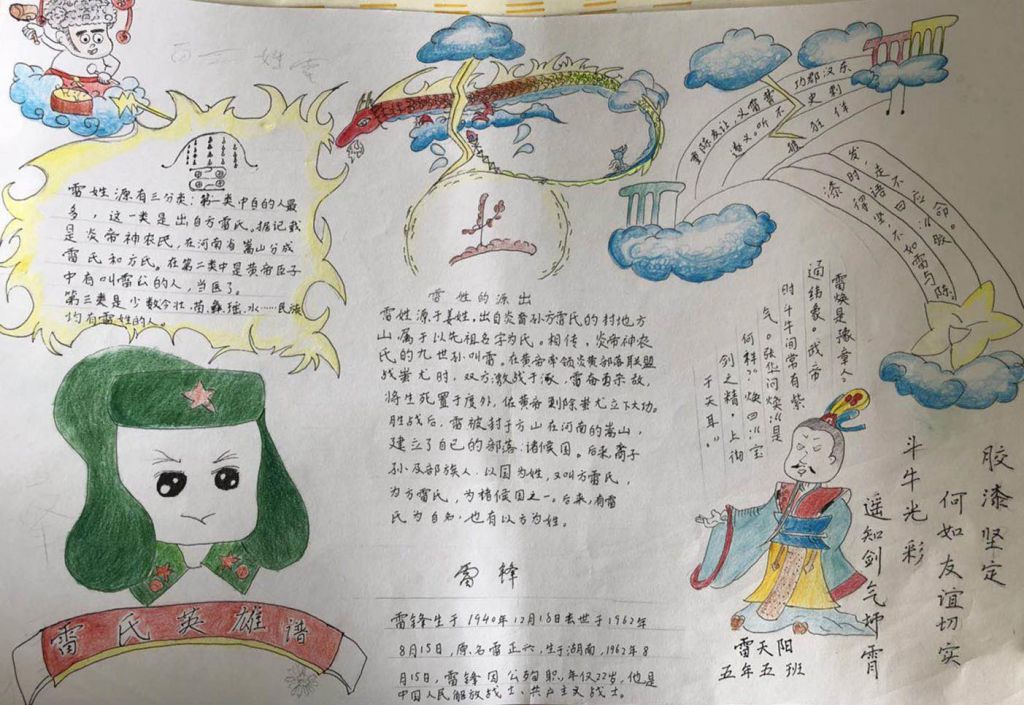 雷姓源有三分类：第一类中自的人最
多，这一类是出自方雷氏。据记载
是炎帝神农氏，在河南省嵩山分成
雷氏和方氏。在第二类中是黄帝臣子
中有叫雷公的人，当医了。
第三类是少数今壮、苗、彝、瑶、水……民族
均有雷姓的人。
雷氏英雄谱
雷姓的源出
雷姓源于姜姓。出自炎帝孙方雷氏的村地方
山，属于以先祖名字为氏。相传，炎帝神农
氏的九世孙叫雷。在黄帝率领炎黄部落联盟
战蚩尤时，双方激战于涿，雷奋勇杀敌，
将生死置于度外，佐黄帝剿除蚩尤立下大功。
胜战后，雷被封于方山在河南的嵩山，
建立了自己的部落诸侯国。后来，离子
孙及部族人，以国为姓，又叫方雷氏，
为方雷氏，为诸侯国之一。后来，有雷
氏为自知，也有以方为姓。
雷锋
雷锋生于1940年12月18去世于1962年
8月15日，原名雷正兴，生于湖南，1962年8
月15日，雷锋因公殉职，年仅22岁，他是
中国人民解放战士、共产主义战士。
曹陈友让，又雷替
功郡汉东
史刺
遵义。听不
被狂伴
发，走不应命。
时语曰：“胶
漆得坚，不如雷与陈。
雷焕是豫章人。
通纬象。武帝
时斗牛间常有紫
气。张华问焕“是
何祥？”焕曰“宝
剑之精，上彻
于天耳。”
胶漆坚定
何如友谊切实
斗牛光彩
遥知剑气坤霄
雷天阳
五年五班